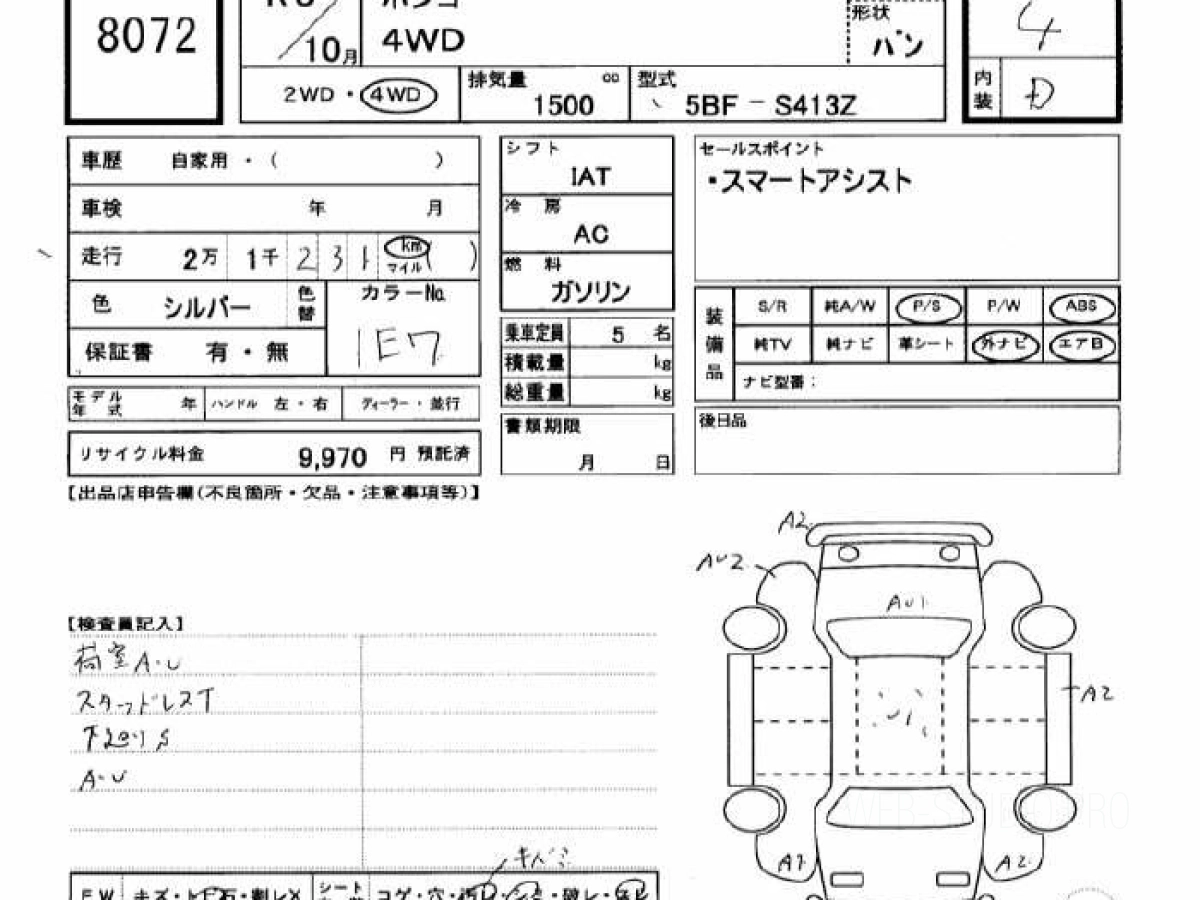 8072
10月
4WD
形状
バン
4
2WD・4WD
排気量 cc
1500
型式
5BF － S413Z
内装 D
車歴 自家用・（ ）
車検 年 月
走行 2万 1千 2 3 1 km ( )
マイル
色 シルバー 色替
カラーNo.
1E7
保証書 有・無
モデル年式 年 ハンドル 左・右 ディーラー・並行
リサイクル料金 9,970 円 預託済
シフト
IAT
冷房
AC
燃料
ガソリン
乗車定員 5 名
積載量 kg
総重量 kg
書類期限
月 日
セールスポイント
・スマートアシスト
装備品
S/R 純A/W P/S P/W ABS
純TV 純ナビ 革シート 外ナビ エアB
ナビ型番：
後日品
【出品店申告欄(不良箇所・欠品・注意事項等)】
【検査員記入】
荷室A・U
スタッドレスT
下廻りS
A・U
A2
AU2
AU1
A2
A1
A2
キバミ
FW キズ・トビ石・割レX シート コゲ・穴・汚レ・シミ・破レ・